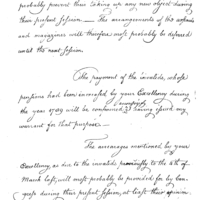 probably prevent their taking up any new object during
their present Session — The arrangements of the arsenals
and magazines will therefore most probably be deferred
until the next Session.
The payment of the invalids, whose
pensions had been increased by your Excellency during
the year 1789 will be continued
warrant for that purpose.
The arrearages mentioned by your
Excellency, as due to the invalids to the 4th of
March last, will most probably be provided for by Con-
gress during their present Session, at least